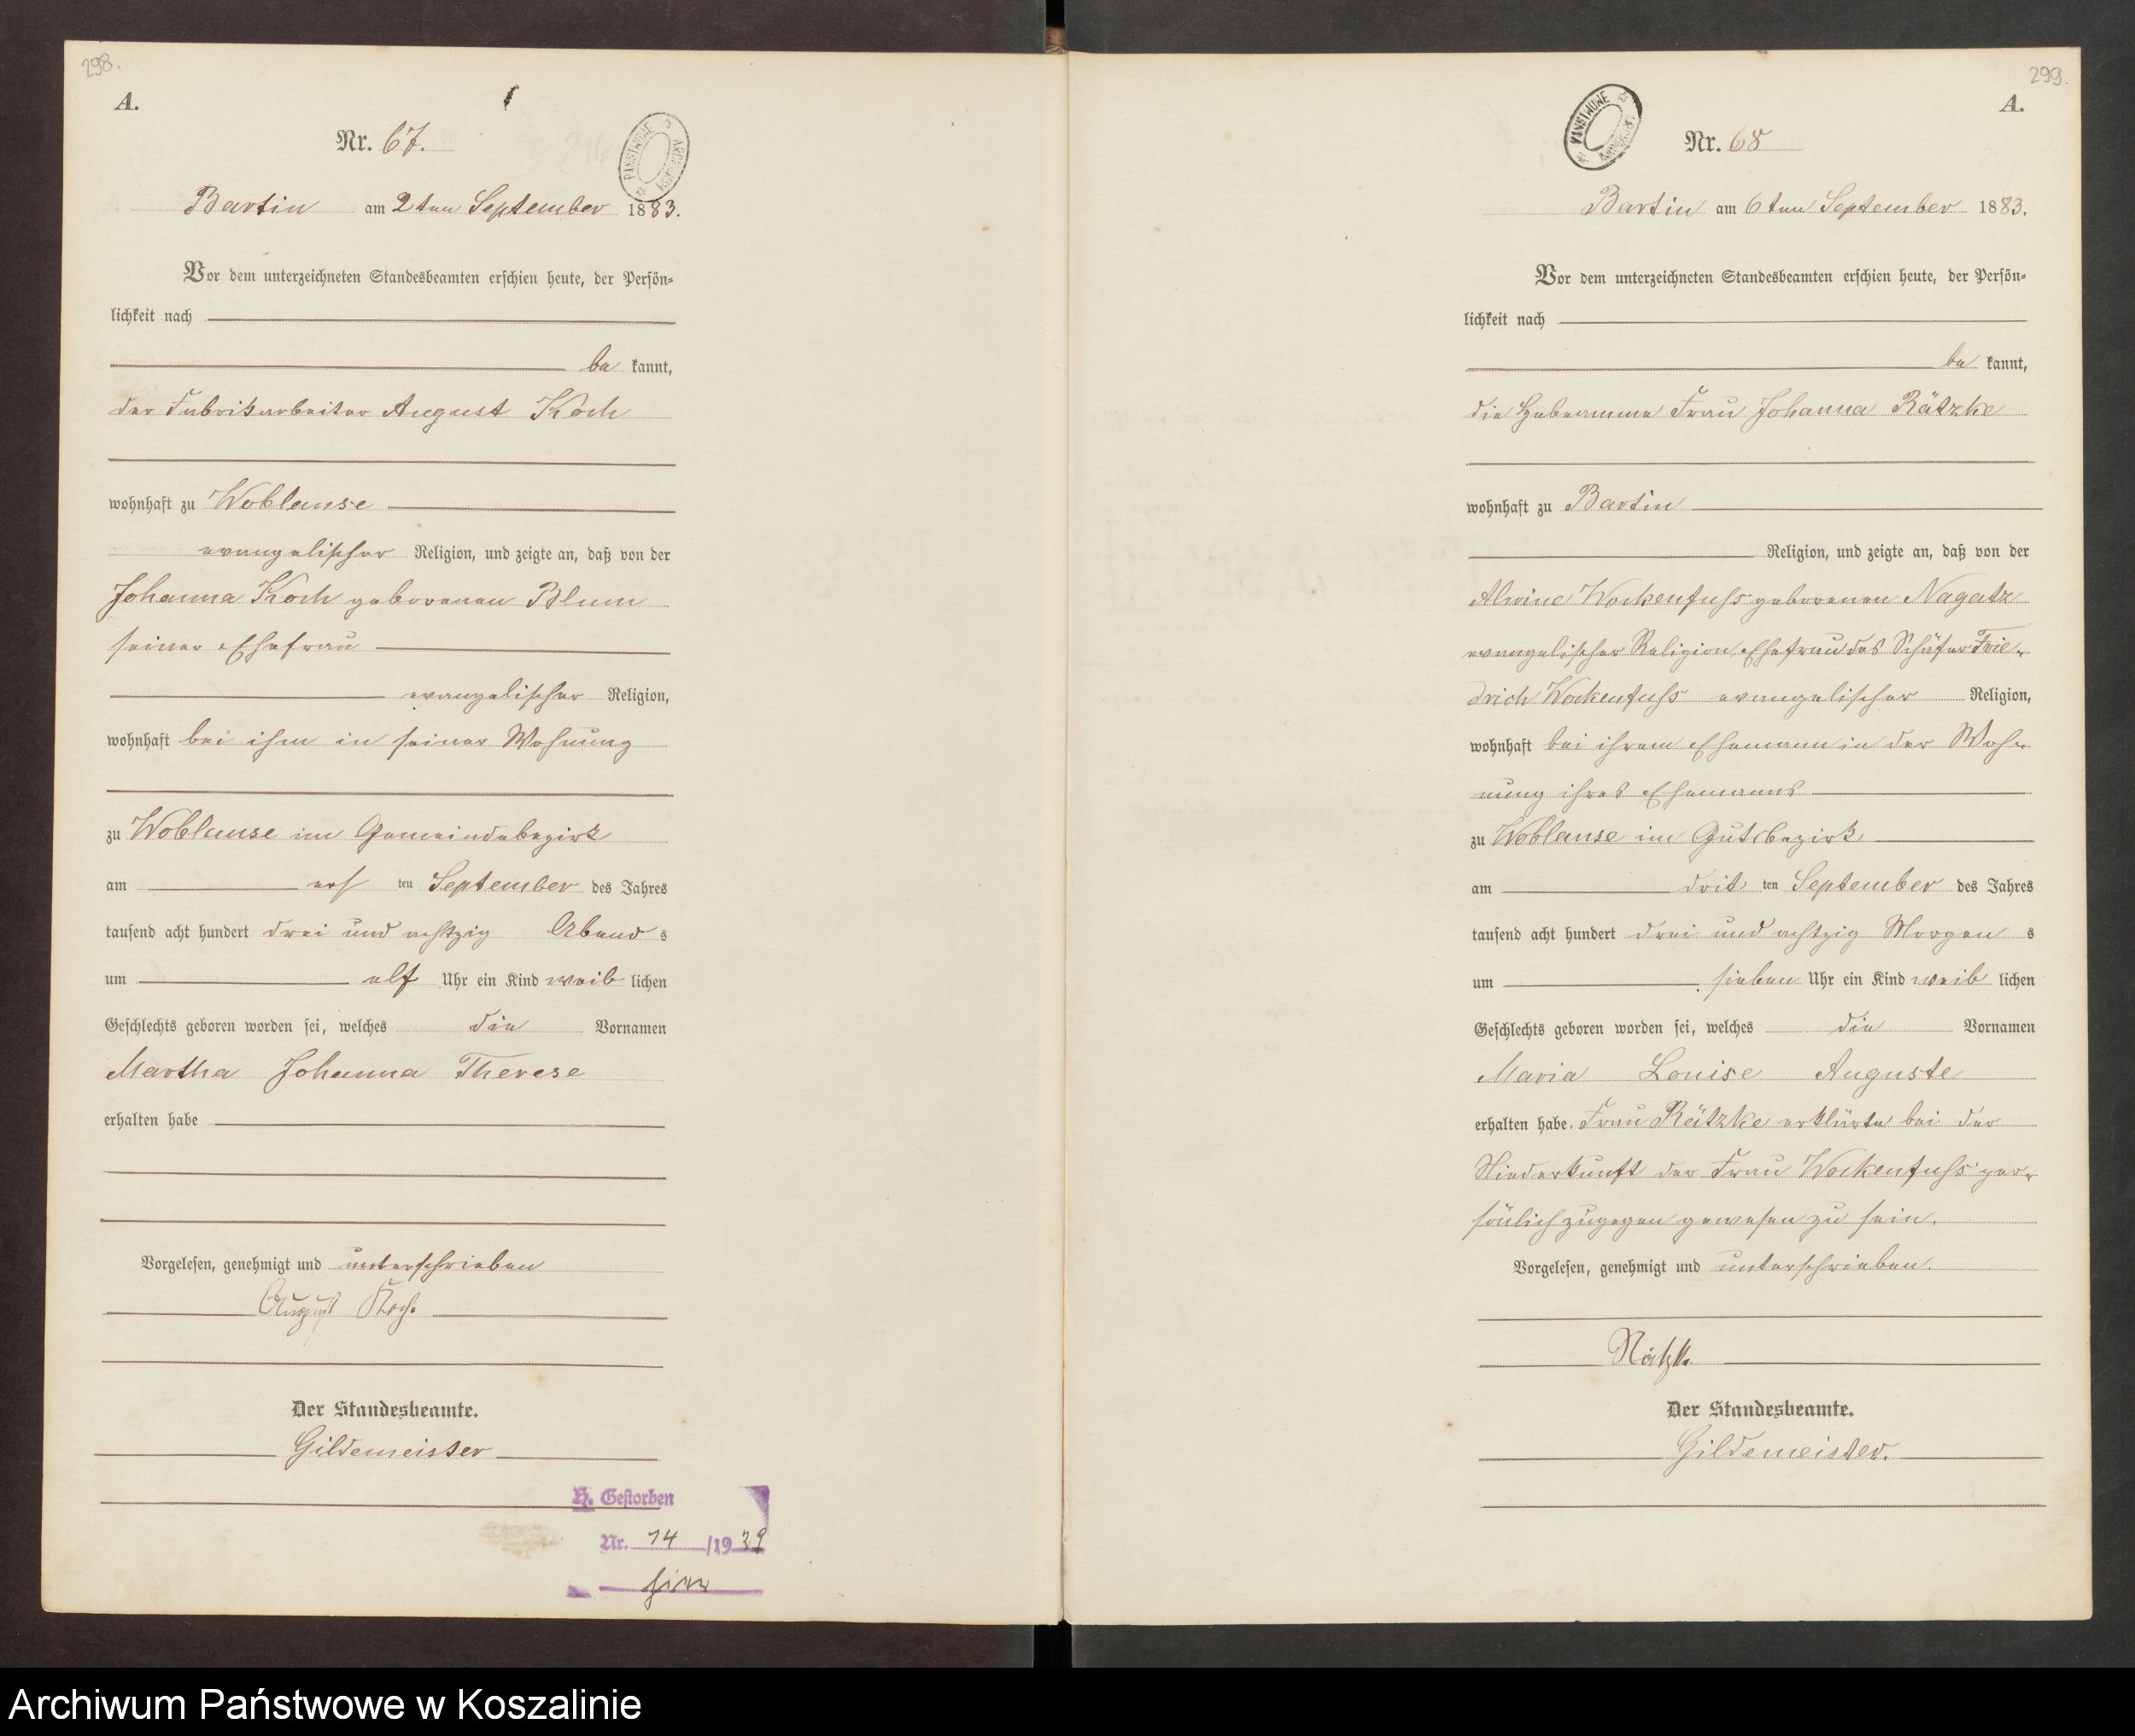 298.
A.
Nr. 67.
PAŃSTWOWE ARCHIWUM
Bartin am 2ten September 1883.
Vor dem unterzeichneten Standesbeamten erschien heute, der Persön-
lichkeit nach
be kannt,
der Fabrikarbeiter August Koch
wohnhaft zu Woblanse
evangelischer Religion, und zeigte an, daß von der
Johanna Koch geborenen Blum
seiner Ehefrau
evangelischer Religion,
wohnhaft bei ihm in seiner Wohnung
zu Woblanse im Gemeindebezirk
am ers ten September des Jahres
tausend acht hundert drei und achtzig Abend s
um elf Uhr ein Kind weib lichen
Geschlechts geboren worden sei, welches die Vornamen
Martha Johanna Therese
erhalten habe
Vorgelesen, genehmigt und unterschrieben
August Koch.
Der Standesbeamte.
Gildemeister
H. Gestorben
Nr. 14 /19 39
hier
299.
A.
PAŃSTWOWE ARCHIWUM
Nr. 68
Bartin am 6ten September 1883.
Vor dem unterzeichneten Standesbeamten erschien heute, der Persön-
lichkeit nach
be kannt,
die Hebeamme Frau Johanna Rätzke
wohnhaft zu Bartin
Religion, und zeigte an, daß von der
Alwine Wockenfuss geborenen Nagatz
evangelischer Religion, Ehefrau des Schäfer Frie-
drich Wockenfuss evangelischer Religion,
wohnhaft bei ihrem Ehemann in der Woh-
nung ihres Ehemanns
zu Woblanse im Gutsbezirk
am drit ten September des Jahres
tausend acht hundert drei und achtzig Morgen s
um sieben Uhr ein Kind weib lichen
Geschlechts geboren worden sei, welches die Vornamen
Maria Louise Auguste
erhalten habe. Frau Rätzke erklärte bei der
Niederkunft der Frau Wockenfuss per-
sönlich zugegen gewesen zu sein.
Vorgelesen, genehmigt und unterschrieben.
Rätzke
Der Standesbeamte.
Gildemeister.
Archiwum Państwowe w Koszalinie